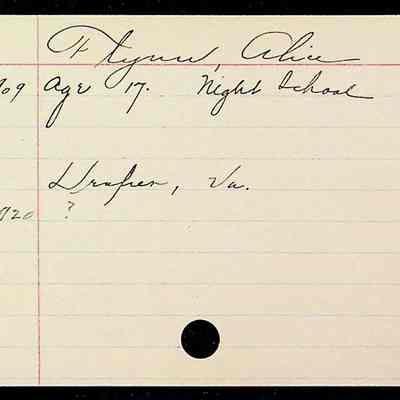 Flynn, Alice
709 Age 17. Night School
Draper, Va.
720 ?